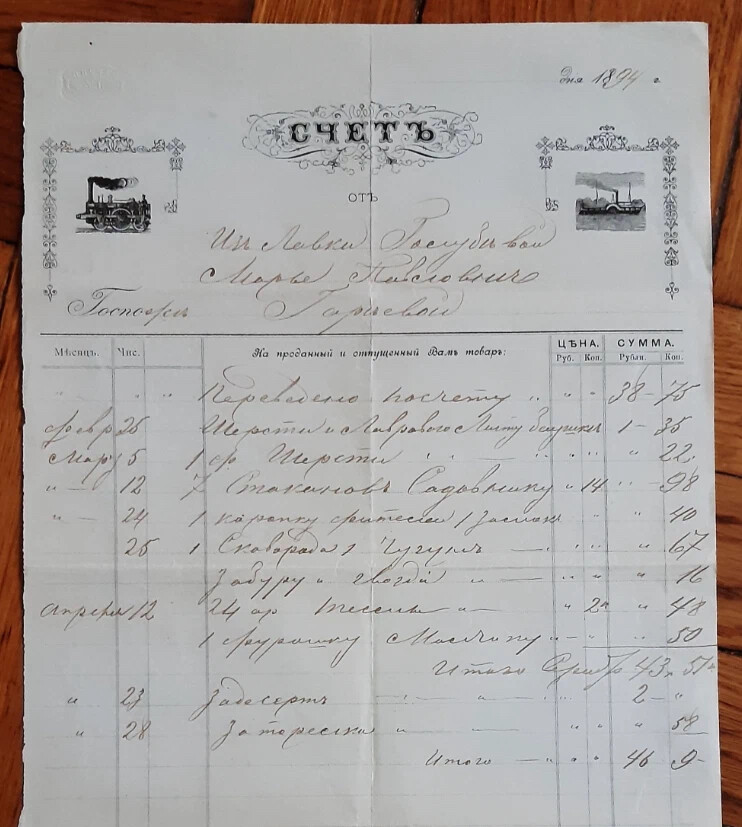 дня 1894 г.
СЧЕТЪ
ОТЪ
Лавки Голубевой
Марье Павловне
Госпожѣ
ЦѢНА. СУММА.
Мѣсяцъ. Чис. На проданный и отпущенный Вамъ товаръ: Руб. Коп. Рубли. Коп.
" " " Переведено посчету " " " 38 — 75
февр 25 Шерсти и Лавроваго Листу 1 — 35
Мар 5 1 ф Шерсти " " " " 22
" 12 7 Стакановъ Садовнику " 14 " — 98
" 24 1 каропку фителей 1 " " 40
25 1 Сковорода 1 Чугунъ — " " " 67
Забуру и гвозди " — " " " 16
Апреля 12 24 ар Тесемъ " — " 2 " 48
1 Мальчику " — " 50
Итого Сереб 43 " 51
" 23 Задесертъ " — " 2 — "
" 28 " " " " 58
Итого — " " 46 9 —